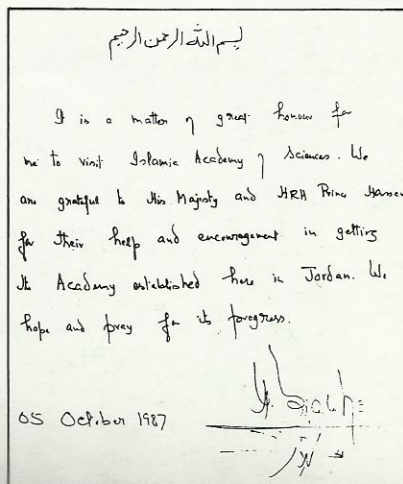 بسم الله الرحمن الرحيم
It is a matter of great honour for
me to visit Islamic Academy of Sciences. We
are grateful to His Majesty and HRH Prince Hassan
for their help and encouragement in getting
the Academy established here in Jordan. We
hope and pray for its progress.
05 October 1987